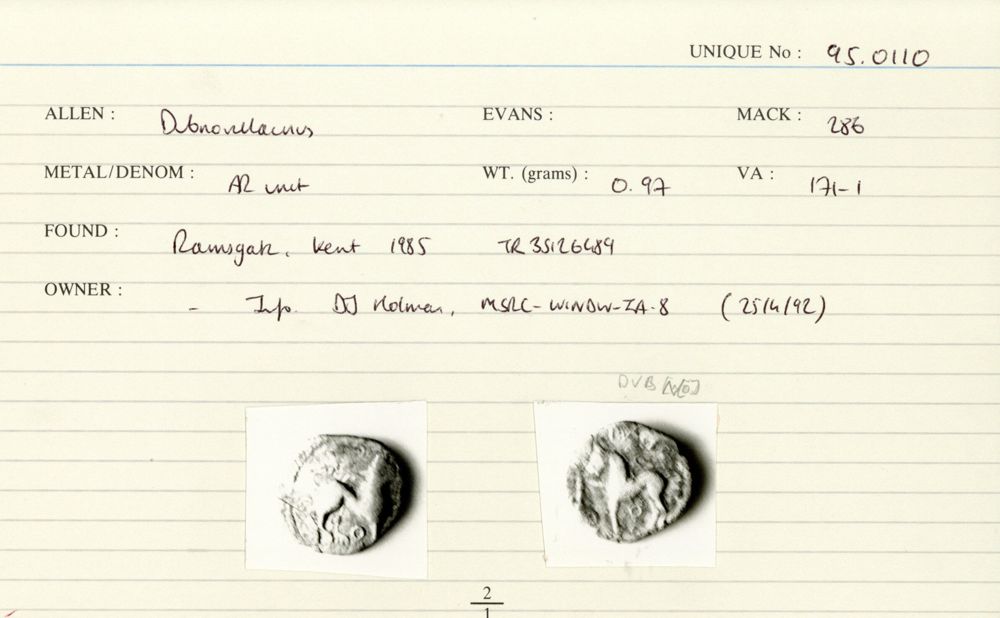 UNIQUE No : 95.0110
ALLEN : Dubnovellaunus EVANS : MACK : 286
METAL/DENOM : AR unit WT. (grams) : 0.97 VA : 171-1
FOUND : Ramsgate, Kent 1985 TR 35126489
OWNER : - Info. DJ Holman, MSRC-WINDW-ZA-8 (25/4/92)
DVB[N[O]
2
1